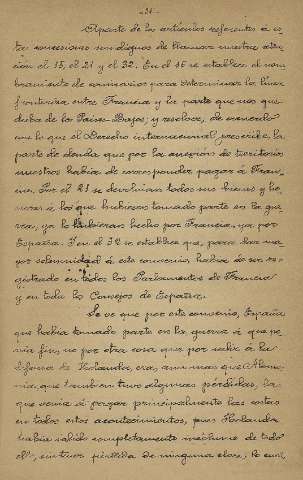 -21-
Aparte de los artículos referentes á es-
tas concesiones son dignos de llamar nuestra aten-
ción el 15, el 21 y el 32. En el 15 se establece el nom-
bramiento de comisarios para determinar la linea
fronteriza entre Francia y la parte que nos que-
daba de los Paises-Bajos; y resolver, de acuerdo
con lo que el Derecho internacional prescribe, la
parte de deuda que por la anexión de territorios
nuestros había de corresponder pagar á Fran-
cia. Por el 21 se devolvían todos sus bienes y ho-
nores á los que hubiesen tomado parte en la gue-
rra, ya lo hubieran hecho por Francia, ya por
España. Y en el 32 se establece que, para dar ma-
yor solemnidad á este convenio, había de ser re-
gistrado en todos los Parlamentos de Francia
y en todos los Consejos de España.
Se ve que por este convenio, España
que había tomado parte en la guerra á que po-
nía fin, no por otra cosa que por salir á la
defensa de Holanda, era, aun mas que Alema-
nia, que tambien tuvo algunas pérdidas, la
que venía á pagar principalmente las costas
en todos estos acontecimientos, pues Holanda
había salido completamente indemne de todo
ello, sin tener pérdida de ninguna clase; lo cual